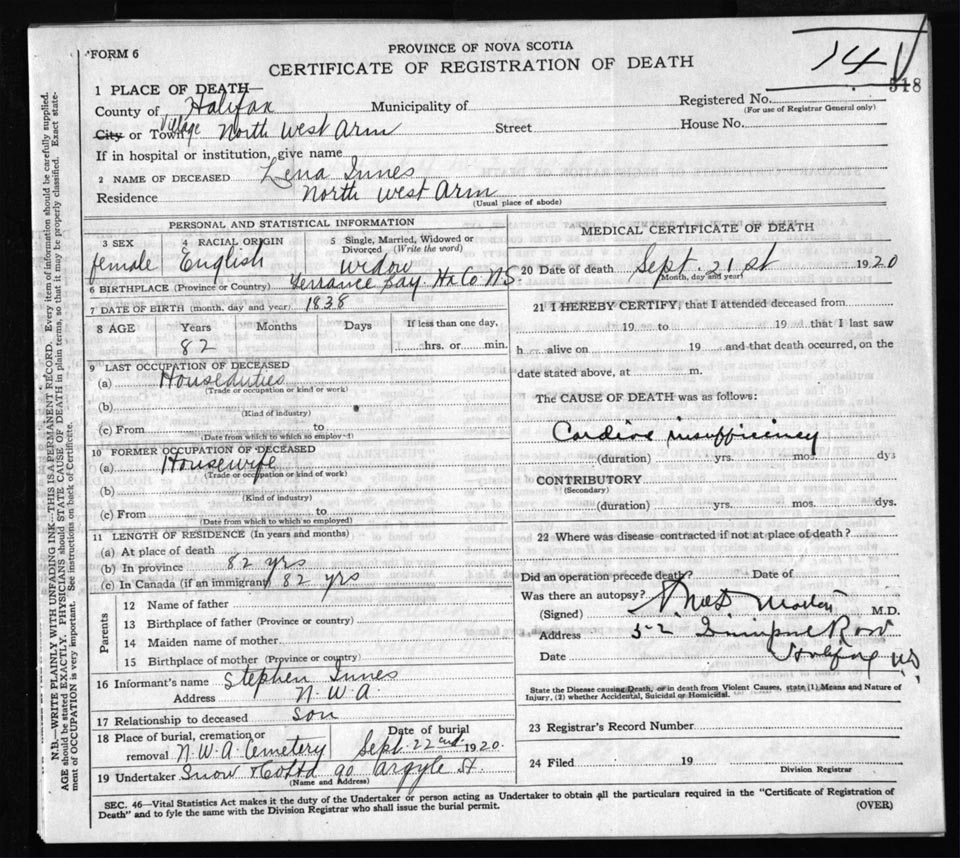 FORM 6
PROVINCE OF NOVA SCOTIA
CERTIFICATE OF REGISTRATION OF DEATH
14
518
1 PLACE OF DEATH
County of Halifax Municipality of Registered No.
(For use of Registrar General only)
City or Town Village North West Arm Street House No.
If in hospital or institution, give name
2 NAME OF DECEASED Lena Innes
Residence North West Arm
(Usual place of abode)
PERSONAL AND STATISTICAL INFORMATION
3 SEX female
4 RACIAL ORIGIN English
5 Single, Married, Widowed or Divorced (Write the word) Widow
6 BIRTHPLACE (Province or Country) Terrance Bay. Hx Co. N.S.
7 DATE OF BIRTH (month, day and year) 1838
8 AGE Years Months Days If less than one day,
82 hrs. or min.
9 LAST OCCUPATION OF DECEASED
(a) Houseduties
(Trade or occupation or kind or work)
(b)
(Kind of industry)
(c) From to
(Date from which to which so employ
10 FORMER OCCUPATION OF DECEASED
(a) Housewife
(Trade or occupation or kind of work)
(b)
(Kind of industry)
(c) From to
(Date from which to which so employed)
11 LENGTH OF RESIDENCE (In years and months)
(a) At place of death
(b) In province 82 yrs
(c) In Canada (if an immigrant) 82 yrs
Parents
12 Name of father
13 Birthplace of father (Province or country)
14 Maiden name of mother
15 Birthplace of mother (Province or country)
16 Informant's name Stephen Innes
Address N. W. A
17 Relationship to deceased son
18 Place of burial, cremation or removal N.W.A. Cemetery
Date of burial Sept. 22nd 1920.
19 Undertaker Snow 90 Argyle St.
(Name and Address)
MEDICAL CERTIFICATE OF DEATH
20 Date of death Sept. 21st 1920
Month, day and year
21 I HEREBY CERTIFY, that I attended deceased from
19 to 19 that I last saw
h alive on 19 and that death occurred, on the
date stated above, at m.
The CAUSE OF DEATH was as follows:
Cardiac insufficiency
(duration) yrs. mos. dys
CONTRIBUTORY
(Secondary)
(duration) yrs. mos. dys.
22 Where was disease contracted if not at place of death?
Did an operation precede death? Date of
Was there an autopsy?
(Signed) M.D.
Address Row
Date Halifax N.S.
State the Disease causing Death, or in death from Violent Causes, state (1) Means and Nature of
Injury, (2) whether Accidental, Suicidal or Homicidal.
23 Registrar's Record Number
24 Filed 19
Division Registrar
SEC. 46—Vital Statistics Act makes it the duty of the Undertaker or person acting as Undertaker to obtain all the particulars required in the "Certificate of Registration of
Death" and to fyle the same with the Division Registrar who shall issue the burial permit. (OVER)
N.B.—WRITE PLAINLY WITH UNFADING INK—THIS IS A PERMANENT RECORD. Every item of information should be carefully supplied.
AGE should be stated EXACTLY. PHYSICIANS should STATE CAUSE OF DEATH in plain terms, so that it may be properly classified. Exact state-
ment of OCCUPATION is very important. See instructions on back of Certificate.